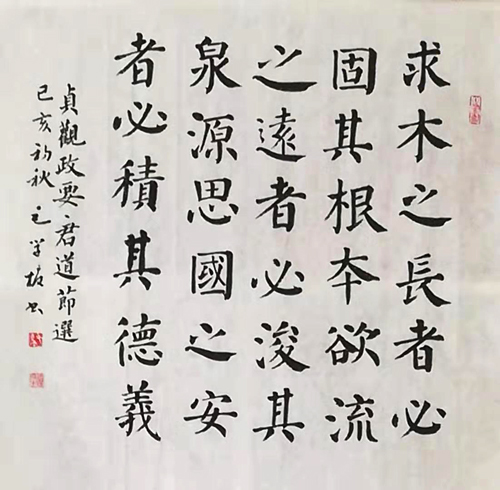 求木之長者必
固其根本欲流
之遠者必浚其
泉源思國之安
者必積其德義
貞觀政要·君道節選
己亥初秋